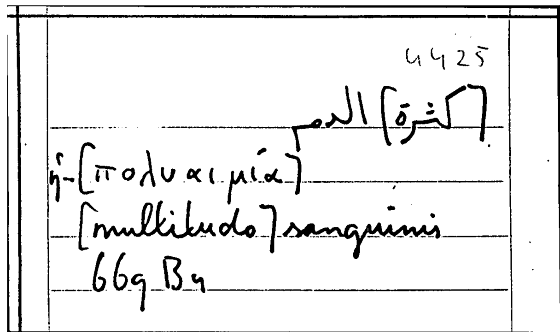 4425
[كثرة] الدم
ἡ - [πολυαιμία]
[multitudo] sanguinis
669 B9